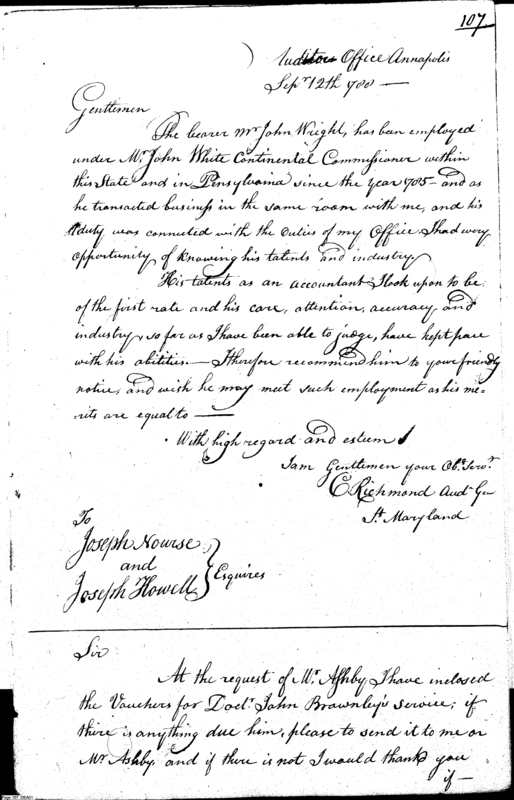 107
Auditors Office Annapolis
Sepr 12th 1788 —
Gentlemen
The bearer Mr John Wright, has been employed
under Mr John White Continental Commissioner within
this State and in Pensylvaina since the year 1785 – and as
he transacted business in the same room with me, and his
duty was connected with the duties of my Office I had every
opportunity of knowing his talents and industry.
His talents as an accountant I look upon to be
of the first rate and his care, attention, accuracy and
industry, so far as I have been able to judge, have kept pace
with his abilities. — I therefore recommend him to your friendly
notice, and wish he may meet such employment as his me-
rits are equal to —
With high regard and esteem
I am Gentlemen your Obt Servt
C Richmond Audr Gen
St Maryland
To
Joseph Nourse
and
Joseph Howell
Esquires
Sir
At the request of Mr Ashby I have inclosed
the Vouchers for Doctr John Brownley's service; if
there is anything due him, please to send it to me or
Mr Ashby, and if there is not I would thank you
if —